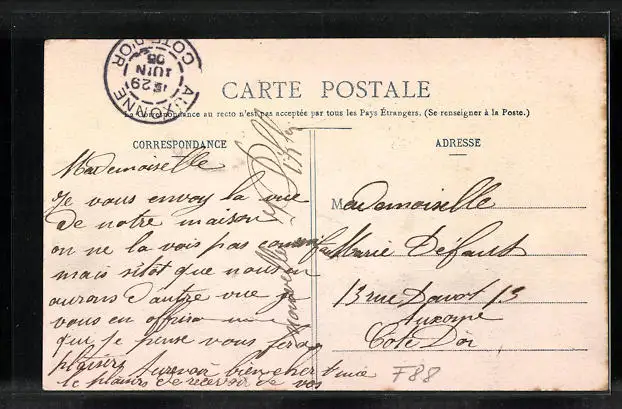 AUXONNE
CÔTE-D'OR
29
JUIN
05
CARTE POSTALE
La Correspondance au recto n'est pas acceptée par tous les Pays Étrangers. (Se renseigner à la Poste.)
CORRESPONDANCE
ADRESSE
Mademoiselle
Je vous envoy la vue
de notre maison
on ne la vois pas comme il faut
mais sitôt que nous en
aurons d'autre vue je
vous en offrira une
que je pense vous feras
plaisirs Aurevoir bien cher Amie
le plaisirs de recevoir de vos
nouvelles
Mademoiselle
Marie Défaut
13 rue Davot 13
Auxonne
Côte D'Or
F88